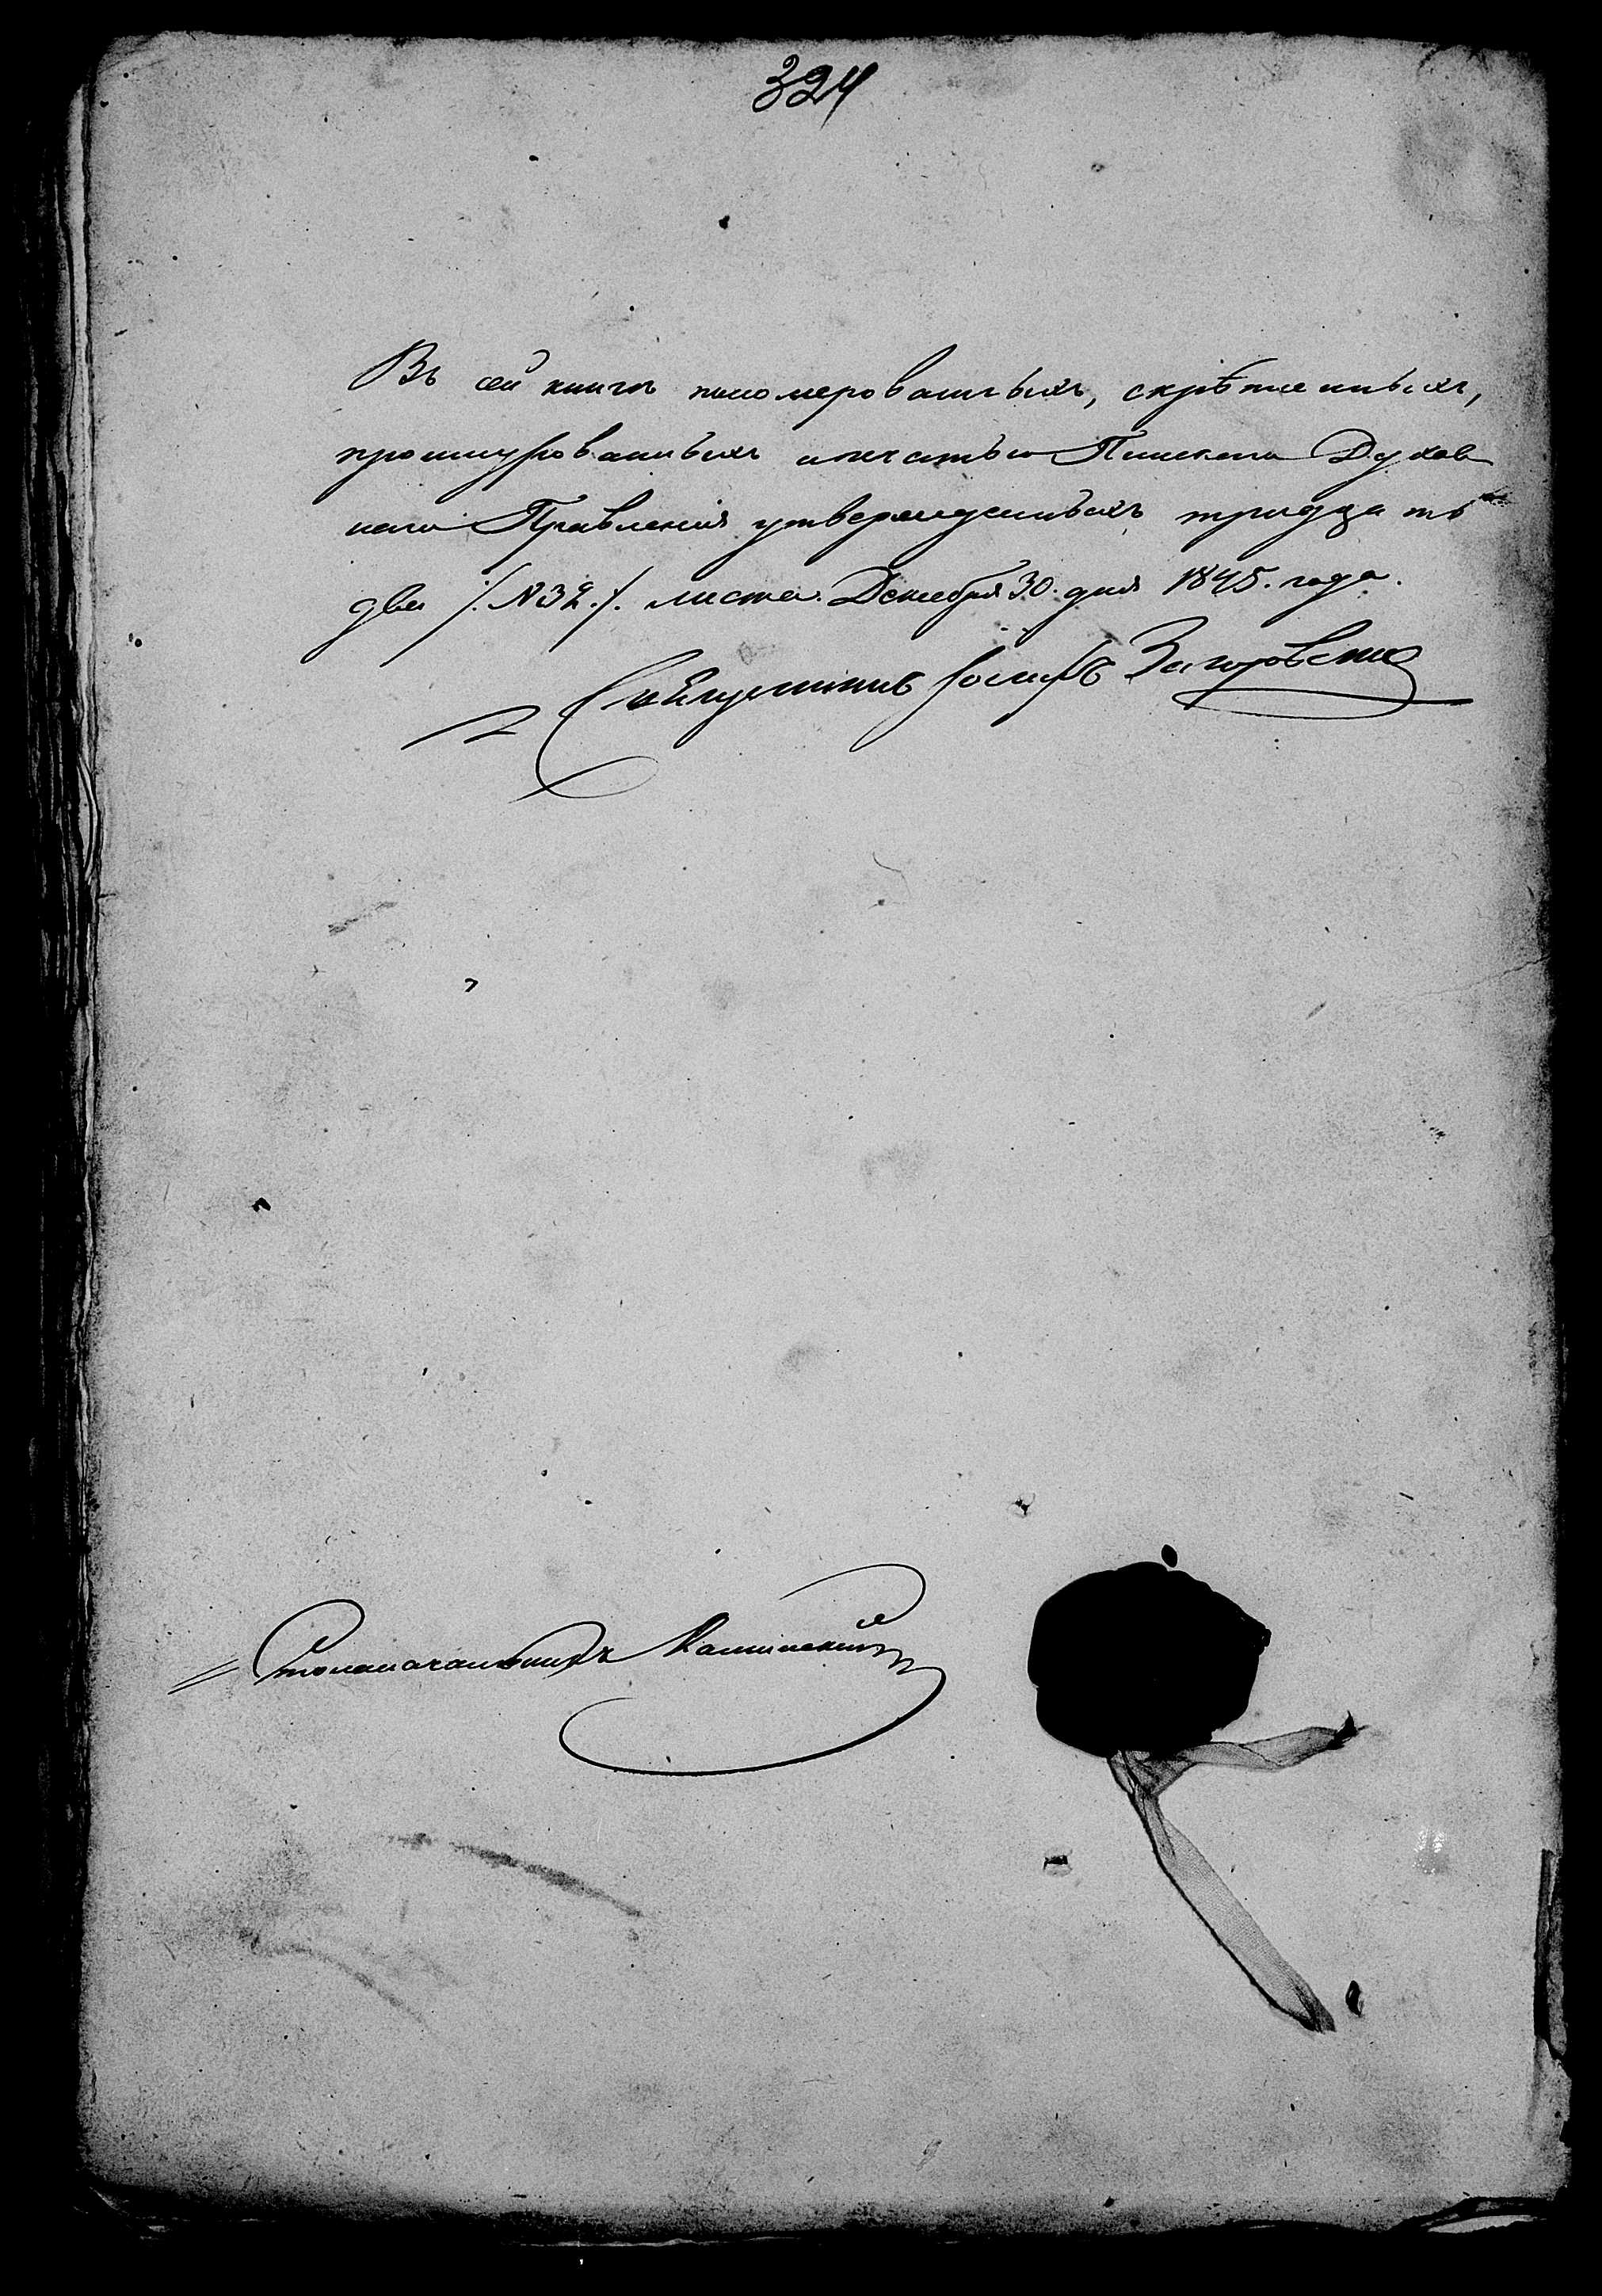 324
Въ сей книгѣ пономерованныхъ, скрѣпленныхъ,
прошнурованныхъ и печатью Пинскаго Духов
наго Правленія утвержденныхъ тридцать
два /:N32.:/ листа. Декабря 30. дня 1845. года.
Іосифъ Загоровскій
Столоначальникъ